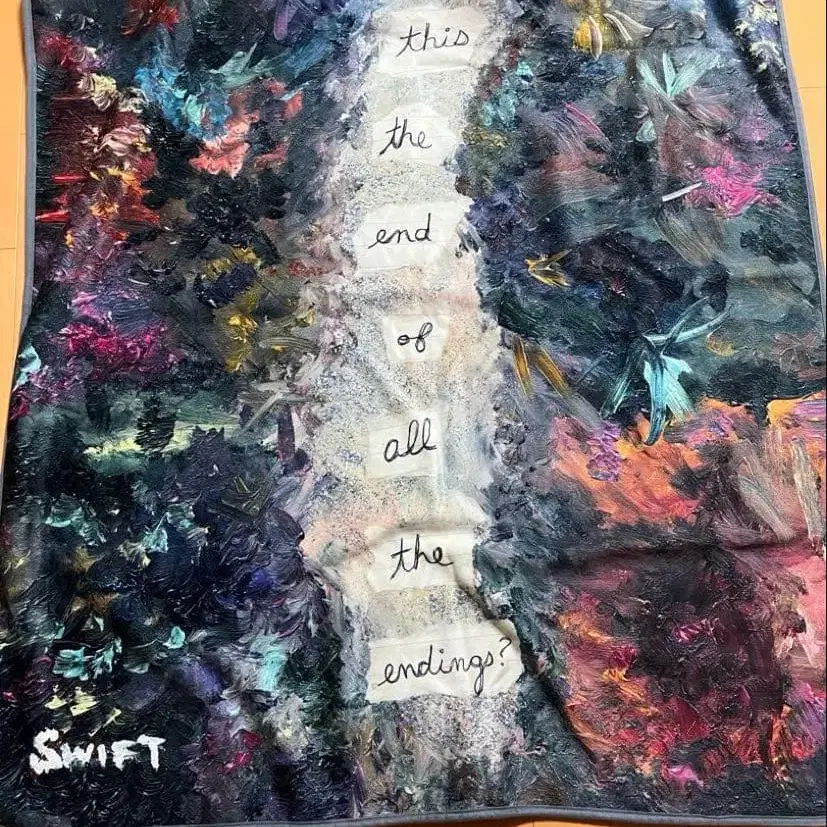 this
the
end
of
all
the
endings?
SWIFT